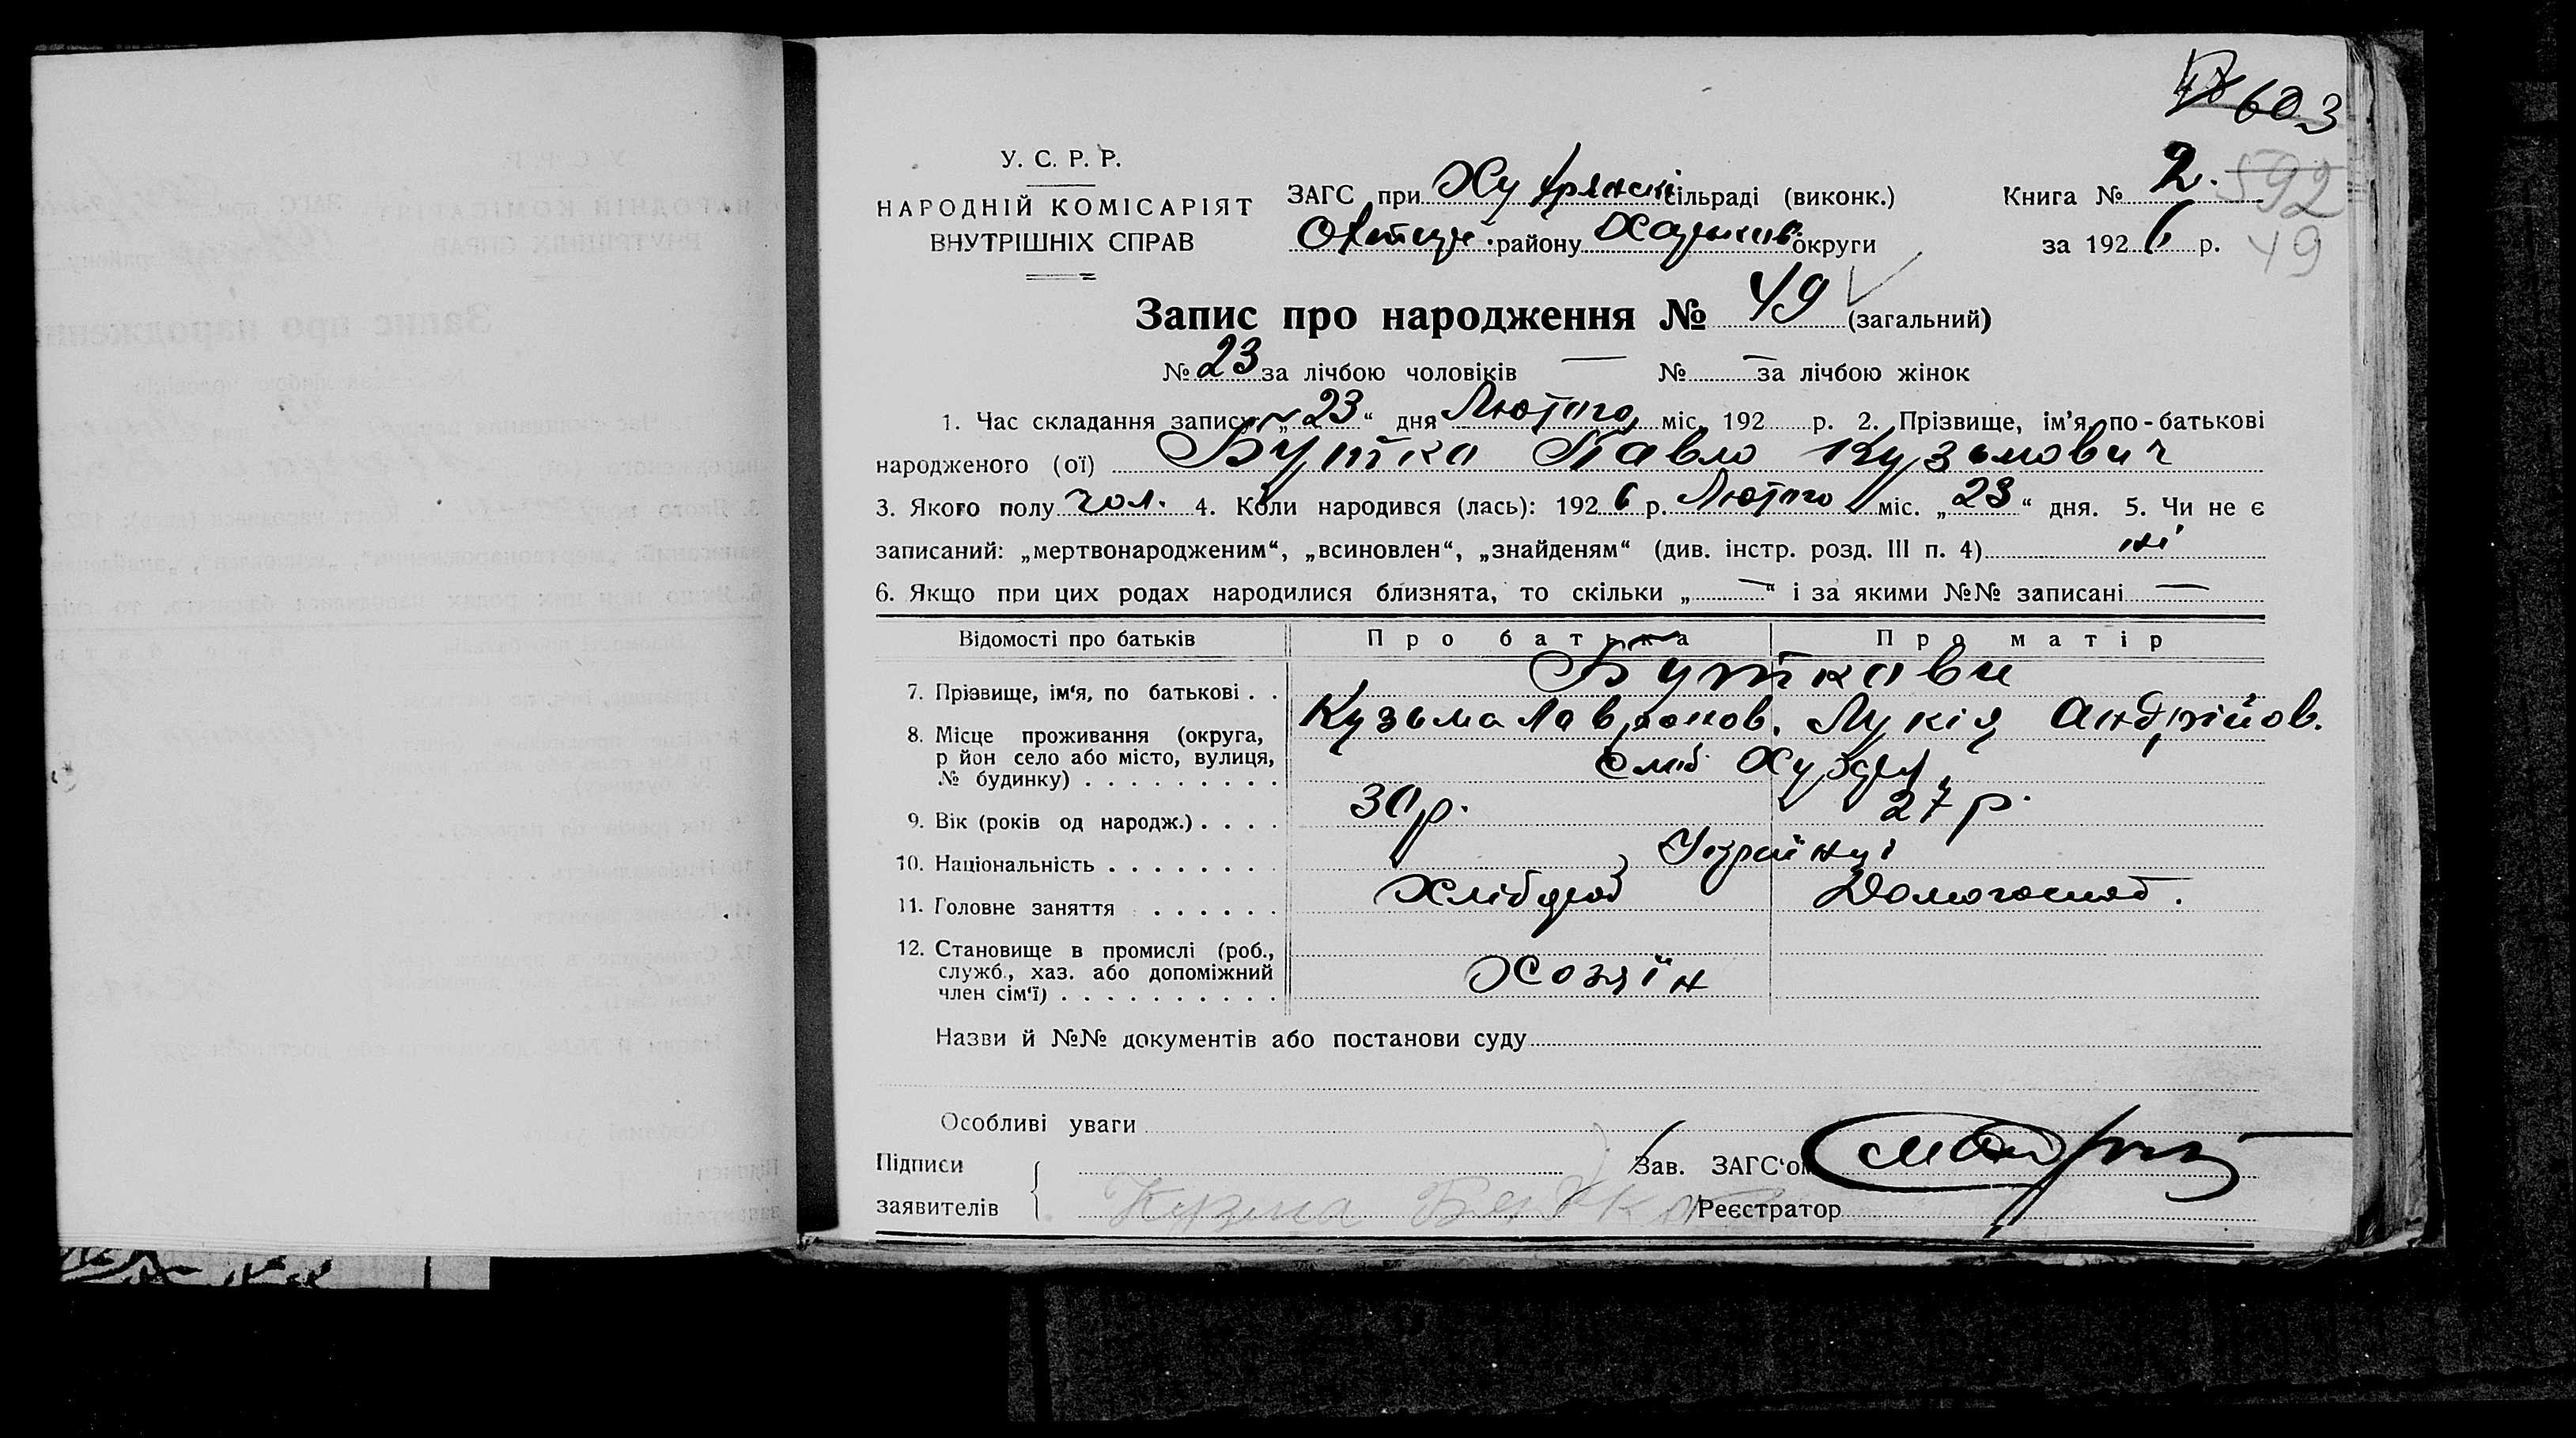 603
У. С. Р. Р.
НАРОДНІЙ КОМІСАРІЯТ
ВНУТРІШНІХ СПРАВ
ЗАГС при сільраді (виконк.)
району округи
Книга № 2.
592
за 1926 р.
49
Запис про народження № 49 (загальний)
№ 23 за лічбою чоловіків — № — за лічбою жінок
1. Час складання запису „23“ дня Лютого міс. 192 р. 2. Прізвище, ім'я, по-батькові
народженого (ої) Бутко Павло Кузьмович
3. Якого полу чол. 4. Коли народився (лась): 1926 р. Лютого міс. „23“ дня. 5. Чи не є
записаний: „мертвонародженим“, „всиновлен“, „знайденям“ (див. інстр. розд. III п. 4) ні
6. Якщо при цих родах народилися близнята, то скільки „—“ і за якими №№ записані —
Відомості про батьків Про батька Про матір
7. Прізвище, ім'я, по батькові . . Буткови
Кузьма Лавронов. Лукія Андрійов.
8. Місце проживання (округа,
р йон село або місто, вулиця,
№ будинку) . . . . . . . . .
9. Вік (років од народж.) . . . . 30 р. 27 р.
10. Національність . . . . . . . . Українці
11. Головне заняття . . . . . . Хлібороб Домогоспод.
12. Становище в промислі (роб.,
служб., хаз. або допоміжний
член сім'ї) . . . . . . . . . . Хозяїн
Назви й №№ документів або постанови суду
Особливі уваги
Підписи
заявителів
Зав. ЗАГС'ом
Кузма
Реєстратор